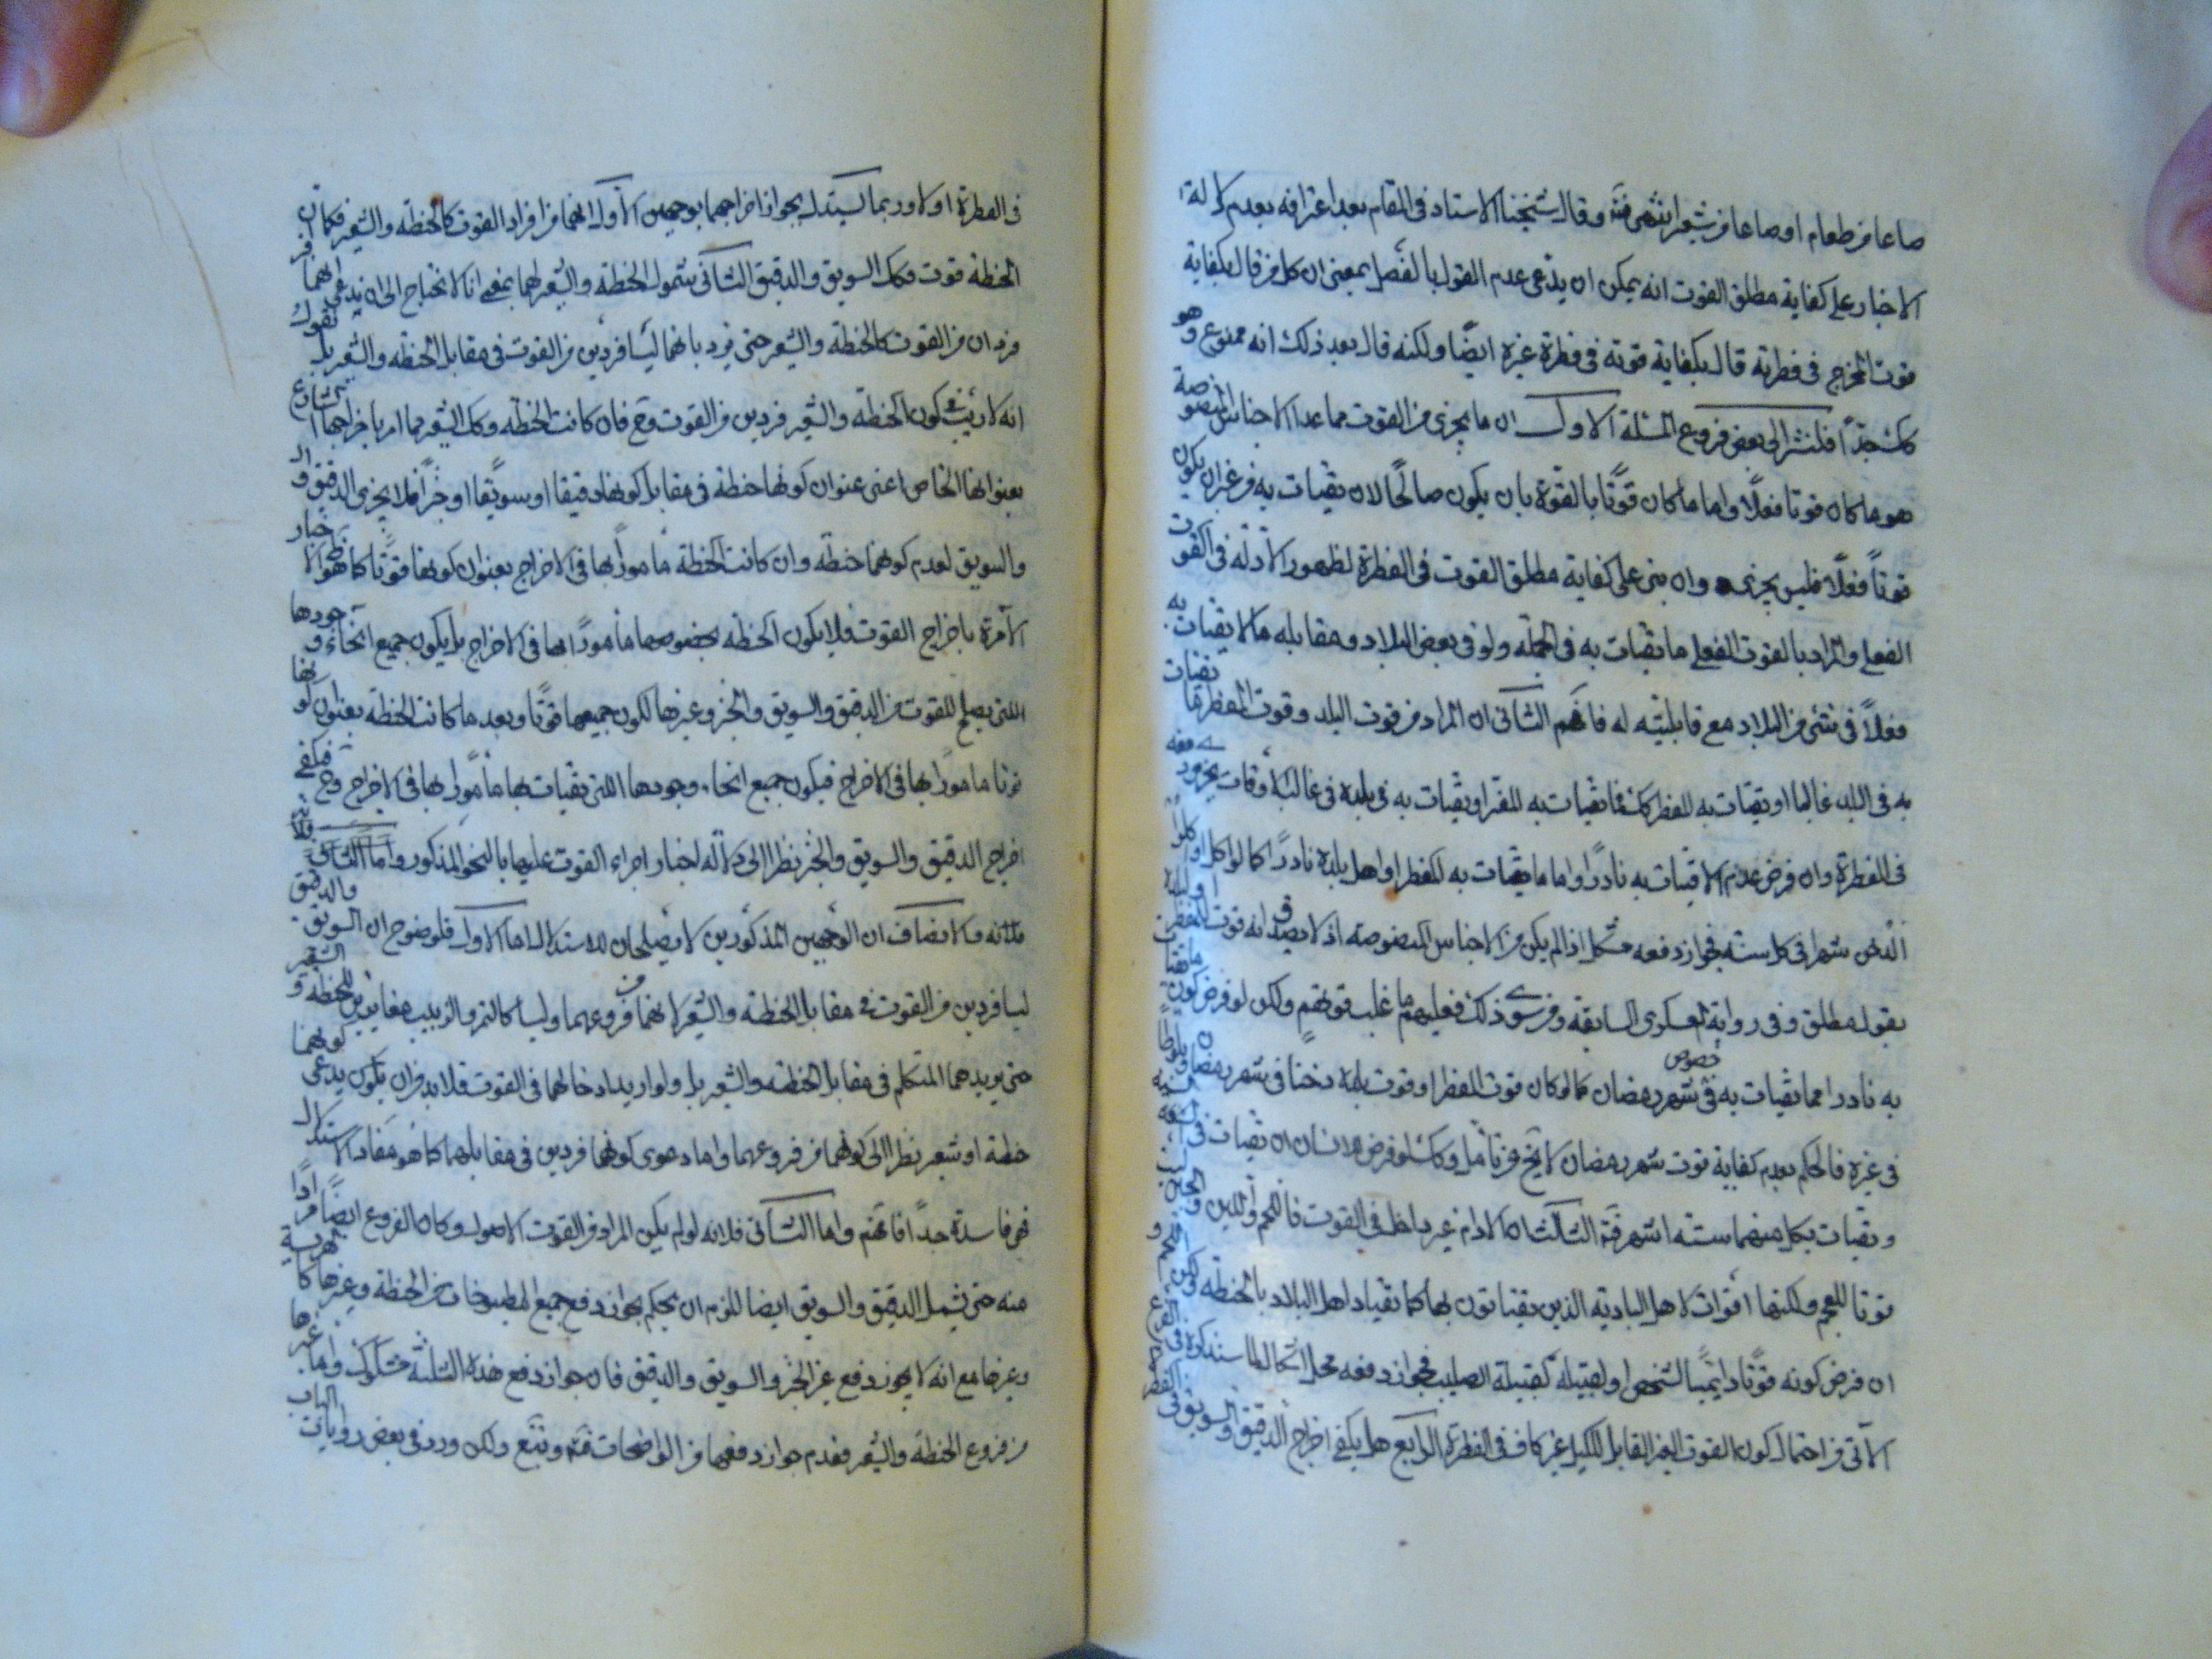 صاعا من طعام او صاعا من شعير انتهى فتـ وقال شيخنا الاستاد فى المقام بعد اعترافه بعدم دلالة
الاخبار على كفاية مطلق القوت انه يمكن ان يدّعى عدم القول بالفصل بمعنى ان كل من قال بكفاية
قوت المخرج فى فطرته قال بكفاية قوته فى فطرة غيره ايضًا ولكنه قال بعد ذلك انه ممنوع وهو
كك جدّاً فلنشر الى بعض فروع المسئلة الاول ان ما يجزى من القوت مما عدا الاجناس المنصوصة
هو ما كان قوتا فعلًا واما ما كان قوتًا بالقوة بان يكون صالحًا لان يقتات به من غير ان يكون
قوتاً فعلًا فليس يجزى وان بنى على كفاية مطلق القوت فى الفطرة لظهور الادله فى القوت
الفعلى والمراد بالقوت الفعلى ما يقتات به فى الجمله ولو فى بعض البلاد ومقابله ما لا يقتات به
فعلاً فى شئ من البلاد مع قابليته له فافهم الثانى ان المراد من قوت البلد وقوت المفطر ما يقتات
به فى البلد غالبا او يقتات به المفطر كك فما يقتات به المفطر او يقتات به فى بلده فى غالب الاوقات يجزى دفعه
فى الفطرة وان فرض عدم الاقتيات به نادرًا واما ما يقتات به المفطر او اهل بلده نادرًا كما لو اكل
الدخن شهرا فى كل سنه فجواز دفعه مشكل اذا لم يكن من الاجناس المنصوصه اذ لا يصدق انه قوت المفطر
بقول مطلق وفى رواية العسكرى السابقه ومن سوى ذلك فعليهم ما غلب قوتهم ولكن لو فرض كون ما يقتات
به نادرا مما يقتات به فى خصوص شهر رمضان كما لو كان قوت المفطر او قوت بلده دخنًا فى شهر رمضان
فى غيره فالحكم بعدم كفاية قوت شهر رمضان لا يخ من تامل وكك لو فرض الانسان ان يقتات فى
ويقتات بكل منهما ستة اشهر فتـ الثالث ان الادام غير داخل فى القوت فاللحم واللبن و
قوتا للعجم ولكنها اقوات لاهل البادية الذين يقتاتون بها كما يقتات اهل البلاد بالحنطة ولكن
ان فرض كونه قوتًا دائميًا لشخص او لقبيلة كقبيلة الصليب فجواز دفعه محل اشكال لما سنذكره فى الفرع
الآتى من احتمال كون القوت الغير القابل للكيل غير كاف فى الفطرة الرابع هل يكفى اخراج الدقيق والسويق فى الفطرة
فى الفطرة او لا وربما يستدل بجواز اخراجهما بوجهين الاول انهما من افراد القوت كالحنطة والشعير فكما ان
الحنطة قوت فكك السويق والدقيق الثانى شمول الحنطة والشعير لهما بمعنى انا لا نحتاج الى ان ندعى انهما
فردان من القوت كالحنطة والشعير حتى يرد بانهما ليسا فردين من القوت فى مقابل الحنطة والشعير بل نقول
انه لا ريب فى كون الحنطة والشعير فردين من القوت وح فان كانت الحنطة وكك الشعير مما امر باخراجها الشارع
بعنوانها الخاص اعنى عنوان كونها حنطة فى مقابل كونها دقيقا او سويقًا او خبزًا فلا يجزى الدقيق
والسويق لعدم كونهما حنطة وان كانت الحنطة مأمورًا بها فى الاخراج بعنوان كونها قوتًا كما هو ظ الاخبار
الآمرة باخراج القوت فلا يكون الحنطة بخصوصها مأمورًا بها فى الاخراج بل يكون جميع انحاء وجودها
التى يصلح للقوت من الدقيق والسويق والخبز وغيرها لكون جميعها قوتًا وبعد ما كانت الحنطة بعنوان كونها
قوتا مامورًا بها فى الاخراج فيكون جميع انحاء وجودها التى يقتات بها مأمورًا بها فى الاخراج وح فيكفى
اخراج الدقيق والسويق والخبز نظرا الى دلالة اخبار اجزاء القوت عليها بالنحو المذكور واما الثانى
ولكن الانصاف ان الوجهين المذكورين لا يصلحان للاستدلال اما الاول فلوضوح ان السويق والدقيق
ليسا فردين من القوت فى مقابل الحنطة والشعير لانهما من فروعهما وليسا كالتمر والزبيب مغايرين للحنطة والشعير
حتى يريدهما المتكلم فى مقابل الحنطة والشعير بل ولو اريد ادخالهما فى القوت فلا بد من ان يكون يدعى كونهما
حنطة او شعير نظرا الى كونهما من فروعهما واما دعوى كونهما فردين فى مقابلهما كما هو مفاد الاستدلال
فهو فاسدة جدًا فافهم واما الثانى فلانه لو لم يكن المراد من القوت الاصول وكان الفروع ايضًا مرادًا
منه حتى يشمل الدقيق والسويق ايضا للزم ان يحكم بجواز دفع جميع المطبوخات من الحنطة وغيرها كالهريسة
وغيرها مع انه لا يجوز دفع غير الخبز والسويق والدقيق فان جواز دفع هذه الثلثة مشكوك واما غيرها
من فروع الحنطة والشعير فعدم جواز دفعهما من الواضحات فتـ وتتبع ولكن ورد فى بعض روايات الباب